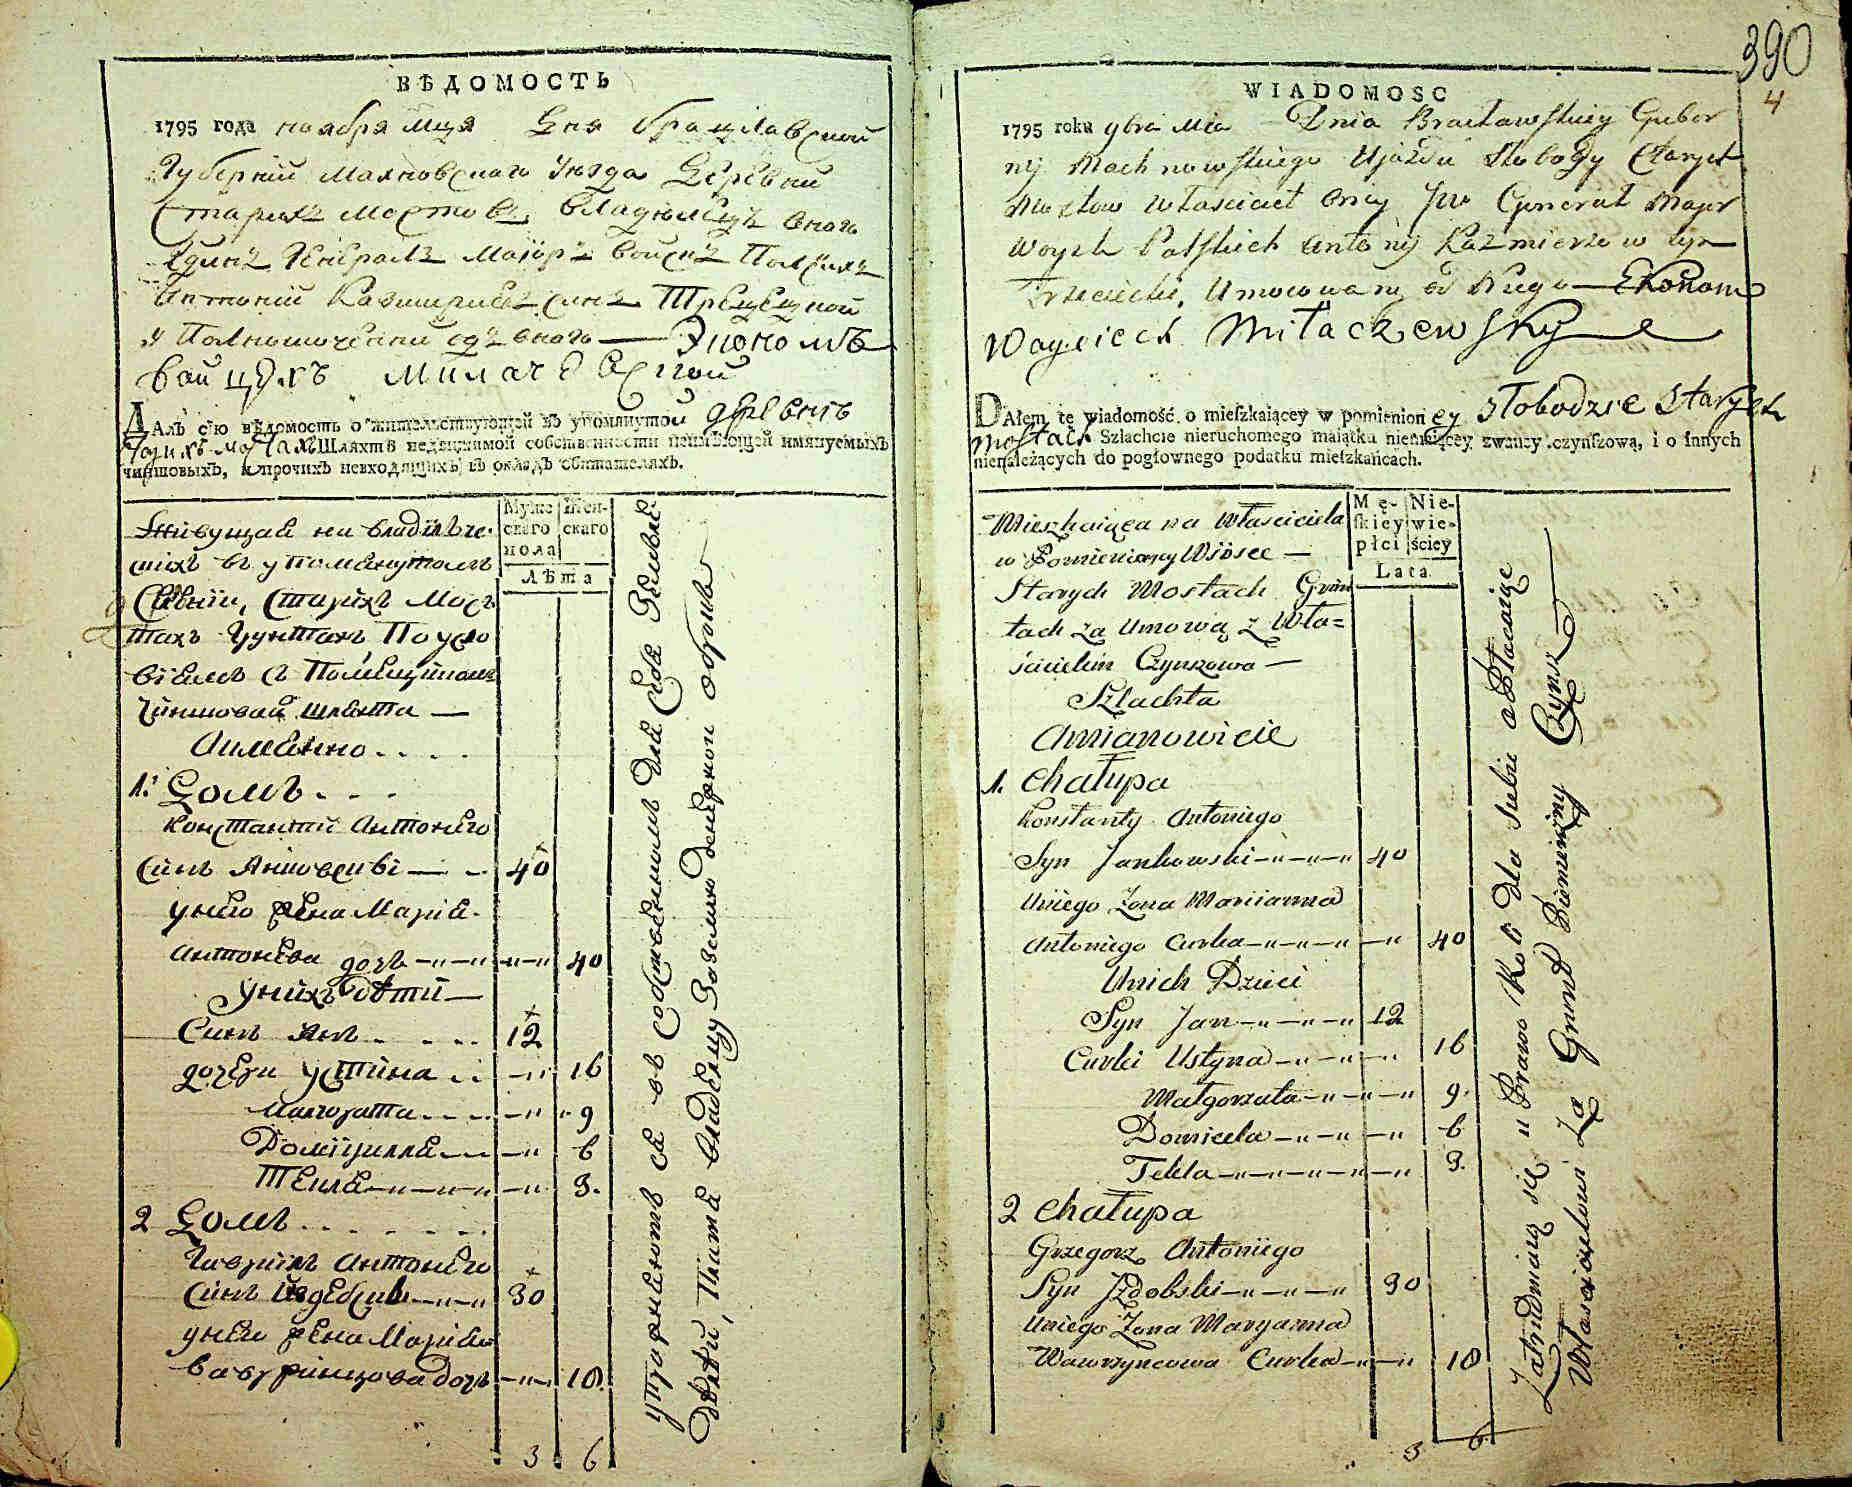 ВѢДОМОСТЬ
1795 года ноября мця Дня Брацлавской
Губернии Махновского уезда Деревни
Старихъ Мостовъ, владюлецъ оного
Генералъ Маіоръ Войскъ Полскихъ
Антоній Казимировъ синъ Трецецкой
и Полномоченний одъ оного — Экономъ
Войцѣхъ Милачевской
ДАлъ сію вѣдомость о жительствующей въ упомянутой деревнѣ
Старихъ мостахъ Шляхтѣ недвижимой собственности неимѣющей имянуемыхъ
чиншовыхъ, и прочихъ невходящихъ въ окладъ обитателяхъ.
Муже-скаго пола
Жен-скаго
Лѣта
Живущая на владѣлче-
скихъ въ упомянутомъ
Старихъ Мос-
тахъ Грунтахъ По усло
віемъ съ Помещикомъ
Чиншовая шляхта —
Аименно . . . .
1. Домъ . . .
Константий Антониго
Синъ Янковски — 40
у него жена Марія
Антонова дочъ 40
У нихъ Дети —
Синъ Янъ . . . . 12
дочери Устина 16
Малгората 9
Доміцилля 6
Текля 3.
2 Домъ . . . . . .
Антониго
Синъ 30
у него жена Маріа
Вавринцова Дочъ 18
3 6
утримуютъ ся
Дѣтей, Платя Владелцу За землю Денежной оброкъ
390
4
WIADOMOSC
1795 roku 9bra Mca Dnia Bracławskiey Guber
nij Machnowskiego Ujazdu Słobody Starych
Mostow Własciciel oney Jw Generał Major
Woysk Polskich Antonij Kazmierzow syn
Trzeciecki, Umocowany od Niego — Ekonom
Woyciech Miłaczewsky
DAłem tę wiadomość o mieſzkaiącey w pomienioney Słobodzie Starych
mostach Szlachcie nieruchomego maiątku niemaiącey zwaney czynſzową, i o innych
nienależących do pogłownego podatku mieſzkańcach.
Mę-ſkiey płci
Nie-wie-ściey
Lata
Mieszkaiąca na Własciciela
w Pomienioney Wiosce —
Starych Mostach Grun
tach za Umową z Wła=
ścicielem Czynszowa —
Szlachta
Amianowicie
1. Chałupa
Konstanty Antoniego
Syn Jankowski 40
Uniego Zona Mariianna
Antoniego Curka 40
Unich Dzieci
Syn Jan 12
Curki Ustyna 16
Małgorzata 9.
Domicela 6
Tekla 3.
2 Chałupa
Grzegorz Antoniego
Syn Jzdebski 30
Uniego Zona Maryanna
Wawrzyncowa Curka 18
3 6
Zatrudniaią się u Prawo Roli dla siebie opłacaiąc
Własciciełowi Za Grunt Pieniężny Czynsz